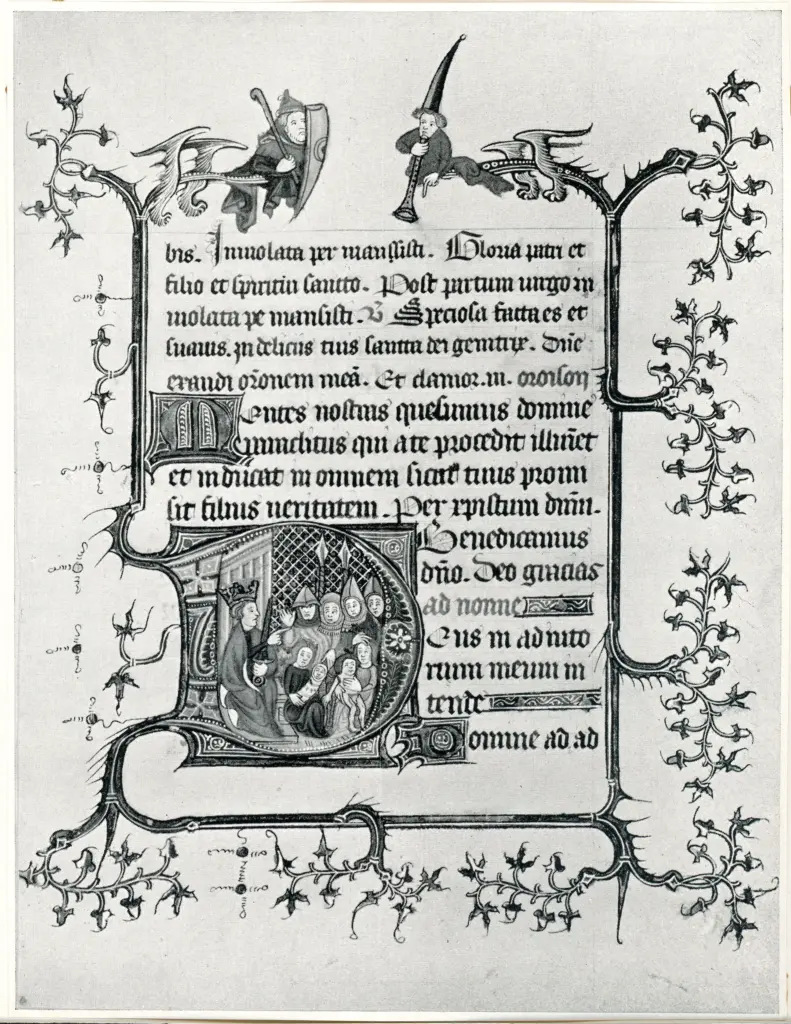 bis. Inuiolata per mansisti. Gloria patri et
filio et spiritui sancto. Post partum uirgo in
uiolata pe mansisti. V Speciosa facta es et
suauis. in deliciis tuis sancta dei genitrix. Dne
exaudi oronem mea. Et clamor. m. oroison
Mentes nostras quesumus domine
paraclitus qui a te procedit illuiet
et inducat in omnem sicut tuus promi
sit filius ueritatem. Per xpistum dnm.
Benedicamus
dno. Deo gracias
ad nonne
Deus in adiuto
rium meum in
tende
Domine ad ad